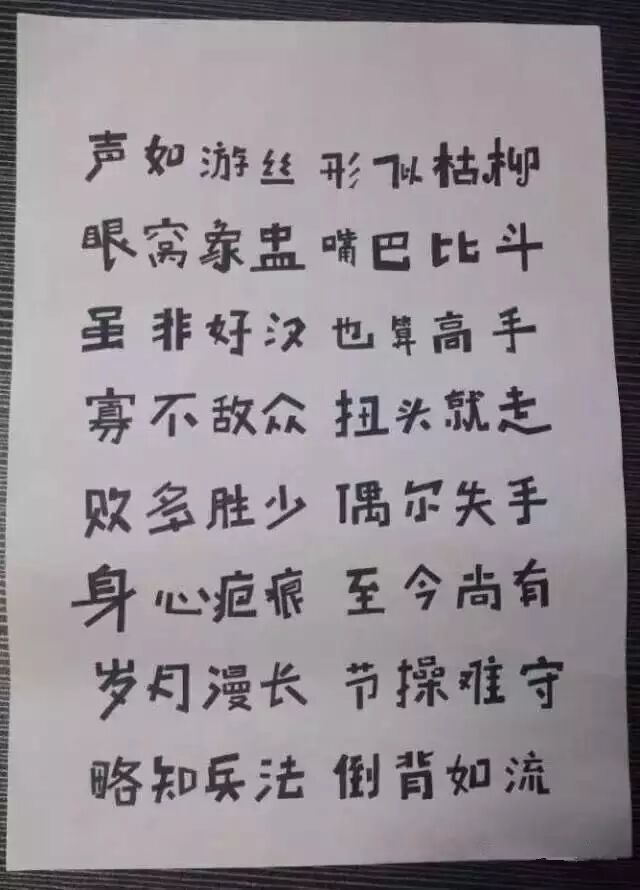 声如游丝 形似枯柳
眼窝象盅 嘴巴比斗
虽非好汉 也算高手
寡不敌众 扭头就走
败多胜少 偶尔失手
身心疤痕 至今尚有
岁月漫长 节操难守
略知兵法 倒背如流